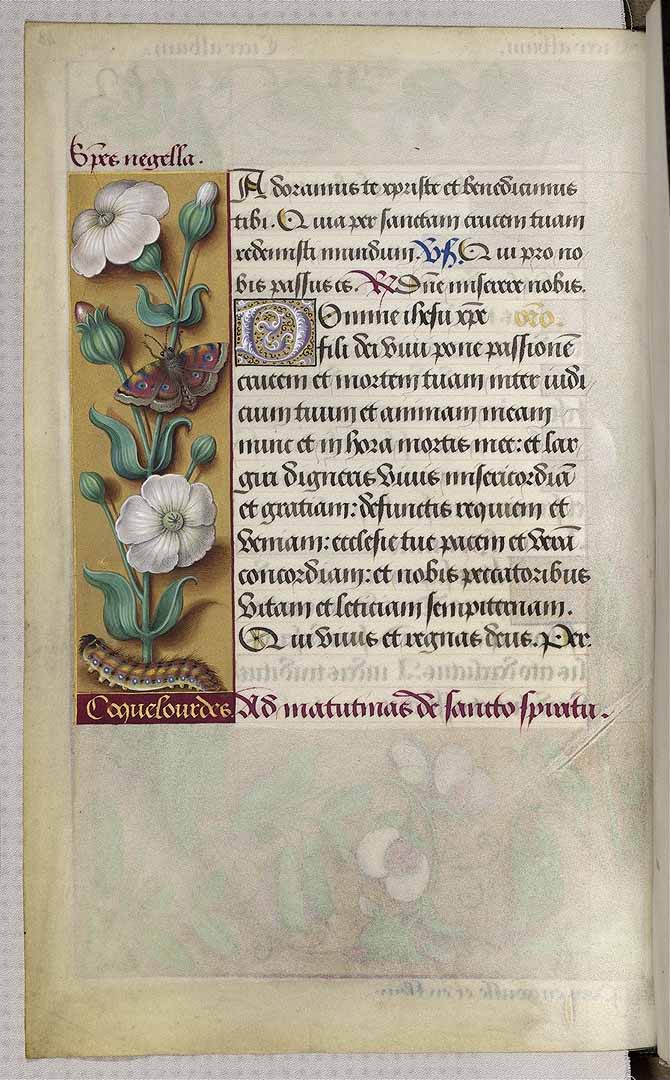 Spēs negella.
Adoramus te xpriste et benedicimus
tibi. Quia per sanctam crucem tuam
redemisti mundum. Vs. Qui pro no
bis passus es. R Dñe miserere nobis.
Domine ihesu xp̄e orō.
fili dei vivi pone passionē
crucem et mortem tuam inter iudi
cium tuum et animam meam
nunc et in hora mortis mee: et lar
giri digneris vivis misericordiā
et gratiam: defunctis requiem et
veniam: ecclesie tue pacem et verā
concordiam: et nobis peccatoribus
vitam et leticiam sempiternam.
Qui vivis et regnas deus. Per.
Coquelourdes Ad matutinas de sancto spiritu.